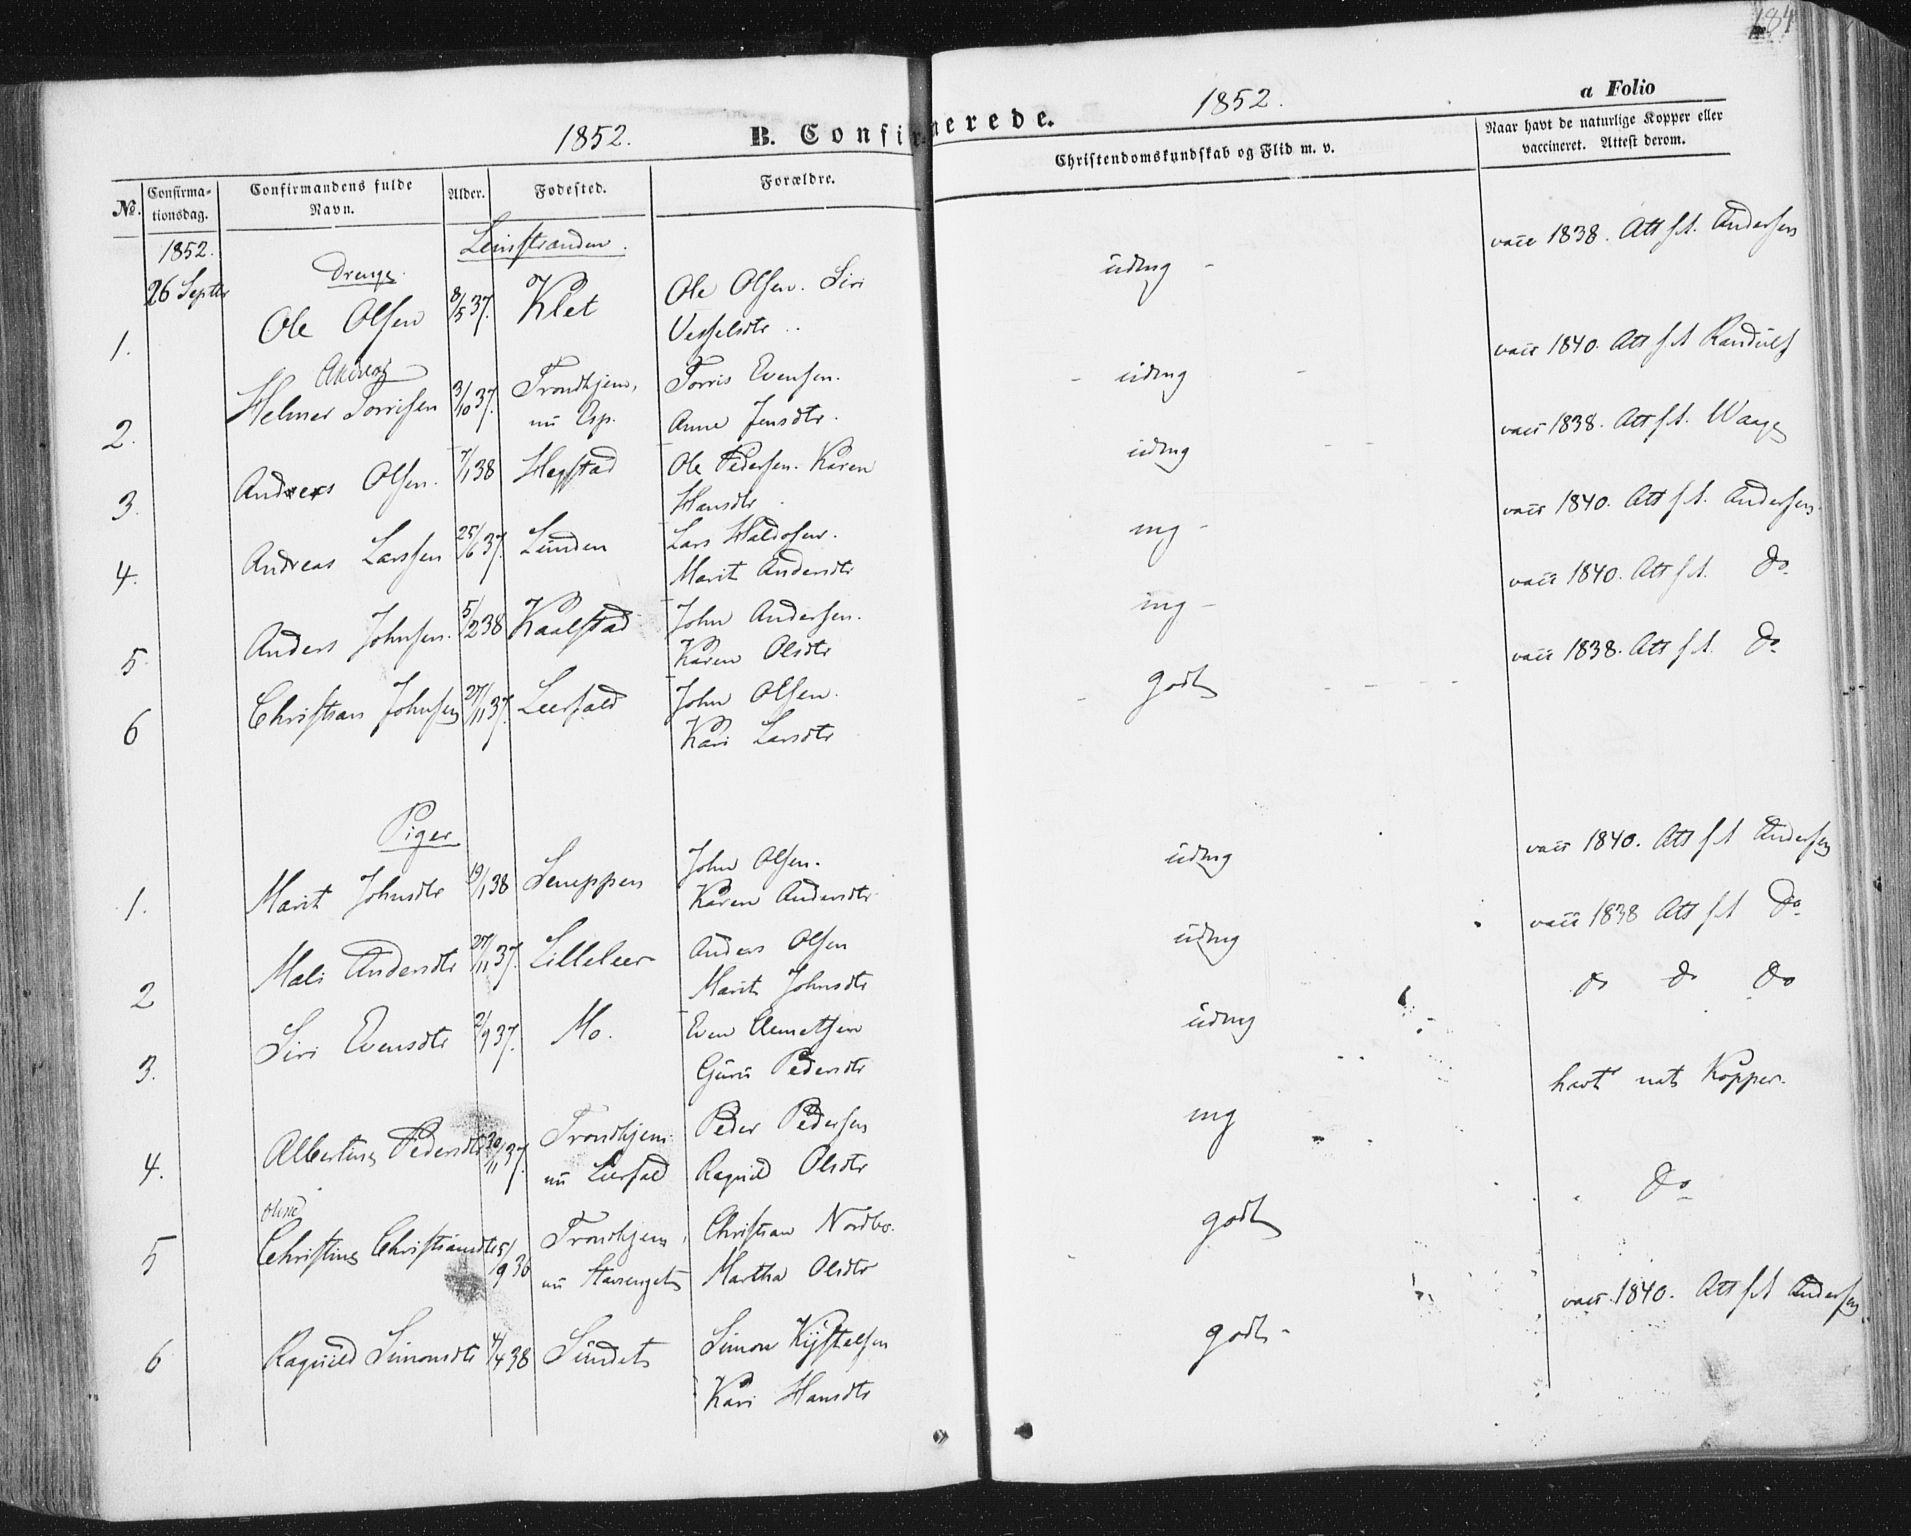 184
a Folio
1852. B. Confirmerede. 1852.
No. Confirmationsdag. Confirmandens fulde Navn. Alder. Fødested. Forældre. Christendomskundskab og Flid m. v. Naar havt de naturlige Kopper eller vaccineret. Attest derom.
1852. Leinstranden.
26 Septbr Drenge.
1. Ole Olsen 8/5 37. Klet Ole Olsen. Siri Vesselsdtr. udmg - vacc 1838. Att f. A. Andersen
2. Helmer Andreas Torrisen 3/10 37. Trondhjem, nu Esp. Torris Evensen. Anne Jensdtr. udmg vacc 1840. Att f A Randulf
3. Andreas Olsen. 7/1 38 Hegstad Ole Pedersen. Karen Hansdtr. udmg vacc 1838. Att f. A. Waage
4. Andreas Larssen 25/6 37. Lunden Lars Haldosen. Marit Andersdtr mg - vacc 1840. Att f A. Andersen.
5. Anders Johnsen. 5/2 38 Kaalstad John Andersen. Karen Olsdtr mg - vacc 1840. Att f A. Do
6 Christian Johnsen 27/11 37. Leerfald John Olsen. Kari Larsdtr godt vacc 1838. Att f A. Do
Piger
1. Marit Johnsdtr 19/1 38 Skjeppen John Olsen. Karen Andersdtr udmg vacc 1840. Att f A Andersen
2 Mali Andersdtr 27/11 37. Lilleleer Anders Olsen Marit Johnsdtr udmg vacc 1838 Att f A Do
3. Siri Evensdtr 2/9 37. Mo. Even Clemetsen Guru Pedersdtr udmg do do Do
4. Albertine Pedersdtr 30/11 37. Trondhjem nu Leerfald Peder Pedersen Ragnild Olsdtr mg havt nat Kopper.
5 Christine Oline Christiansdtr 5/9 36 Trondhjem, nu Christian Nordbo. Martha Olsdtr godt Do
6 Ragnild Simonsdtr 4/4 38 Sundet Simon Kystelsen Kari Hansdtr godt - vacc. 1840. Att f A Andersen